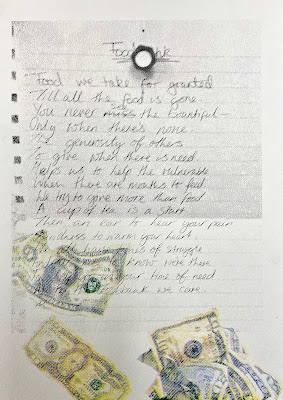 Food
Food we take for granted
Till all the food is gone
You never see the bountiful
Only when there's none.
The generosity of others
To give when there is need.
Helps us to help the vulnerable
When there are mouths to feed.
We try to give more than food
A cup of tea is a start
Then an ear to hear your pain
Kindness to warm your heart
times of struggle
know we're there
your time of need
we care.